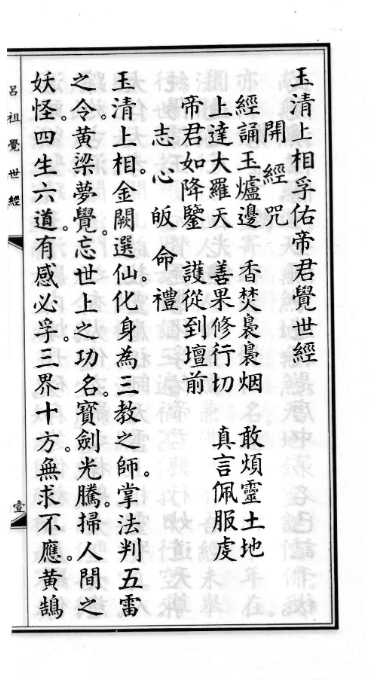 玉清上相孚佑帝君覺世經
開經咒
經誦玉爐邊 香焚裊裊烟 敢煩靈土地
上達大羅天 善果修行切 真言佩服虔
帝君如降鑒 護從到壇前
志心皈命禮
玉清上相。金闕選仙。化身為三教之師。掌法判五雷
之令。黃梁夢覺。忘世上之功名。寶劍光騰。掃人間之
妖怪。四生六道。有感必孚。三界十方。無求不應。黃鵠
呂祖覺世經
壹